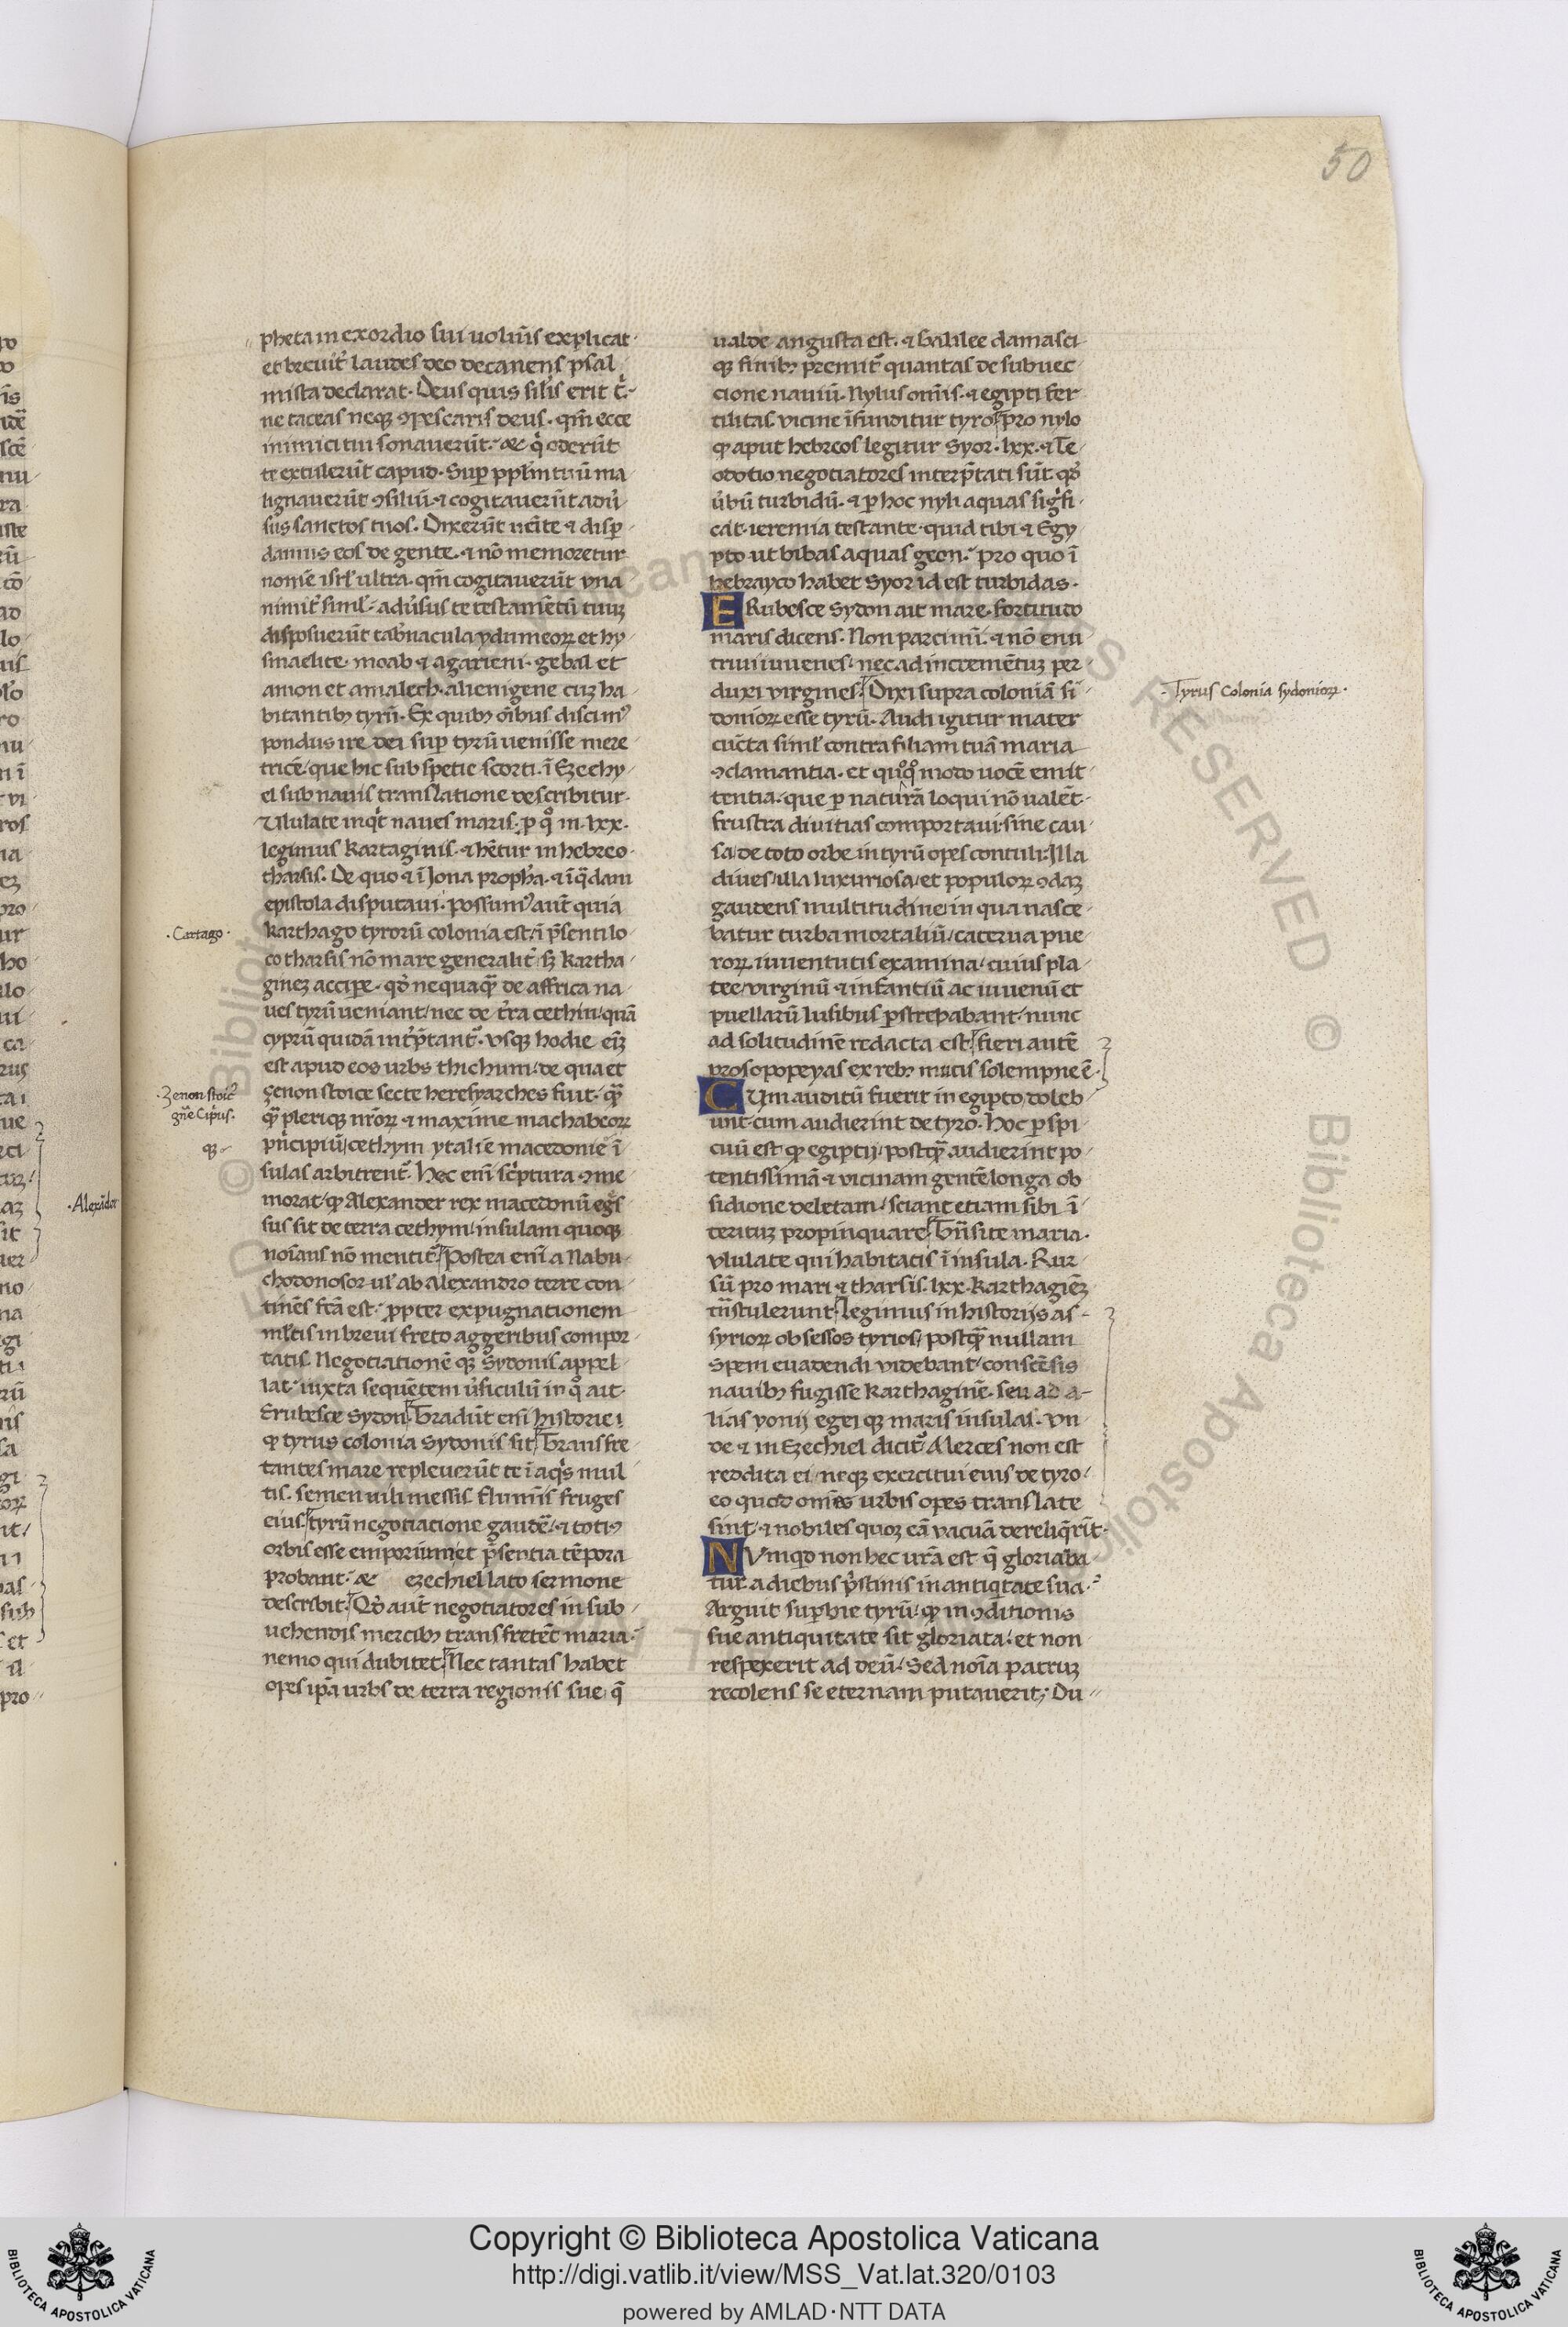 50
pheta in exordio sui uolūīs explicat·
et breuit᷑ laudes deo decanens psal
mista declarat· Deus quis sil̄is erit t᷑·
ne taceas neqꝫ ꝯpescaris deus· qm̄ ecce
inimici tui sonauerūt· & q̇ oderūt
te extulerūt capud· Suꝑ ppl̄m tuū ma
lignauerūt ꝯsiliū· ⁊ cogitauerūt adu᷑
sus sanctos tuos· Dixerūt uēite ⁊ disꝑ
damus eos de gente· ⁊ nō memoretur
nomē isrl̄ ultra· qm̄ cogitauerūt vna
nimit᷑ siml̄· adu᷑sus te testamētū tuuꝫ
disposuerūt tab᷑nacula ydumeoꝝ et hy
smaelite· moab ⁊ agarieni· gebal et
amon et amalech· alienigene cuꝫ ha
bitantibꝫ tyrū· Ex quibꝫ oībus discimꝰ
pondus ire dei suꝑ tyrū uenisse mere
tricē/ que hic sub spetie scorti· ī Ezechy
el sub nauis translatione describitur·
Ululate inqͥt naues maris· ꝓ qͦ in· lxx·
legimus Kartaginis· ⁊ hētur in hebreo
tharsis· De quo ⁊ ī Jona propha· ⁊ ī q̄dam
epistola disputaui· possumꝰ aut̄ quia
Karthago tyrorū colonia est/ ī p̄senti lo
co tharsis nō mare generalit᷑ sꝫ Kartha
gineꝫ accipe· qd̓ nequaqꝫ̄ de affrica na
ues tyrū ueniant/ nec de t᷑ra cethin/ quā
cyprū quidā int᷑p̄tant᷑· vsqꝫ hodie eīꝫ
est apud eos urbs thichum· de qua et
zenon stoice secte heresyarches fuit· qꝫ̄
qꝫ̄ pleriqꝫ nr̄oꝝ ⁊ maxime machabeoꝝ
prīcipiū/ cethym ytalie macedonie ī
sulas arbitrent᷑· Hec eni scͥptura ꝯme
morat/ ꝙ Alexander rex macedonū egs̄
sus sit de terra cethym/ insulam quoqꝫ
noīans nō mentit᷑· Postea enī a Nabu
chodonosor ul̓ ab Alexandro terre con
tinēs fc̄a est· ꝓpter expugnationem
ml̄tis in breui freto aggeribus compor
tatis Negotiationē qꝫ Sydonis appel
lat· iuxta sequētem u᷑siculū in qͦ ait·
Erubesce Sydon· Tradūt eni historie
ꝙ tyrus colonia Sydonis sit· Transfre
tantes mare repleuerūt te ī aqͥs mul
tis· semen uili messis flumīs fruges
eius· tyrū negotiatione gaudē· ⁊ totiꝰ
orbis esse emporium/ et p̄sentia tēpora
probant· & ezechiel lato sermone
describit· Qd̓ aut̄ negotiatores in sub
uehendis mercibꝫ transfretēt maria·
nemo qui dubitet· Nec tantas habet
opes ipā urbs de terra regionis sue q̄
·Cartago·
·Zenon stoicꝰ
gn̄e Ciprus·
qꝫ
·Alexāder
ualde angusta est· ⁊ Galilee damasci
qꝫ finibꝫ premit᷑ quantas de subuec
cione nauiū· Nylus om̄is· ⁊ egipti fer
tilitas vicine īfunditur tyro· pro nylo
ꝙ aput hebreos legitur Syor· lxx· ⁊ Te
odotio negotiatores interp̄tati sūt· qd̓
u᷑bū turbidū· ⁊ ꝑ hoc nyli aquas sigᷤfi
cat· ieremia testante· quid tibi ⁊ Egy
pto ut bibas aquas geon· pro quo ī
hebrayco habet Syor id est turbidas·
ERubesce Sydon ait mare· fortitudo
maris dicens· Non parturiui· ⁊ nō enu
triui iuuenes· nec ad incremētuꝫ per
duxi virgines· Dixi supra coloniā si
donioꝝ esse tyrū· Audi igitur mater
cūcta siml̄ contra filiam tuā maria
ꝯclamantia· et quͦqͦ modo uocē emit
tentia· que ꝑ naturā loqui nō ualēt·
frustra diuitias comportaui· sine cau
sa/ de toto orbe in tyrū opes contuli· Illa
diues/ illa luxuriosa/ et populoꝝ ꝯdaꝫ
gaudens multitudine/ in qua nasce
batur turba mortaliū/ caterua pue
roꝝ iuuentutis examina/ cuius pla
tee/ virginū ⁊ infantiū ac iuuenū et
puellarū lusibus ꝑstrepabant/ nunc
ad solitudinē redacta est· fieri autē
prosopopeyas ex rebꝫ mutis solempne ē·
CUm auditū fuerit in egipto/ doleb
unt· cum audierint de tyro· Hoc ꝑspi
cuū est ꝙ egiptij/ postqꝫ̄ audierint po
tentissimā ⁊ vicinam gentē/ longa ob
sidione deletam/ sciant etiam sibi ī
teritus propinquare· Tn̄site maria·
vlulate qui habitatis ī insula· Rur
sū pro mari ⁊ tharsis· lxx· Karthagiēꝫ
tn̄stulerunt· legimus in historijs as
syrioꝝ obsessos tyrios/ postqꝫ̄ nullam
Spem euadendi videbant/ conscēsis
nauibꝫ fugisse Karthaginē· seu ad a
lias yonij egei qꝫ maris insulas· Vn
de ⁊ in Ezechiel dicit᷑· Merces non est
reddita ei/ neqꝫ exercitui eius de tyro·
eo quod omēs urbis opes translate
sint· ⁊ nobiles quoꝫ eā vacuā dereliq̄rīt·
NVmqd non hec ur̄a est q̄ gloriaba
tur a diebus pͥstinis in antiqͥtate sua·
Arguit suꝑbie tyrū· ꝙ in ꝯditionis
sue antiquitate sit gloriata· et non
respexerit ad deū/ Sed noīa patruꝫ
recolens se eternam putauerit; Du
·Tyrus Colonia sydonioꝝ·
Copyright © Biblioteca Apostolica Vaticana
http://digi.vatlib.it/view/MSS_Vat.lat.320/0103
powered by AMLAD·NTT DATA
BIBLIOTECA APOSTOLICA VATICANA
BIBLIOTECA APOSTOLICA VATICANA